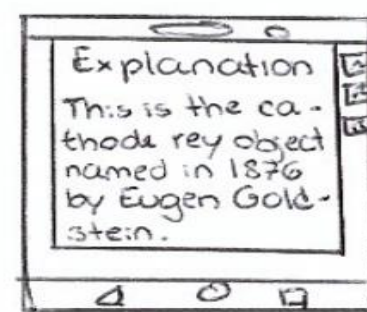 Explanation
This is the ca-
thode rey object
named in 1876
by Eugen Gold-
stein.